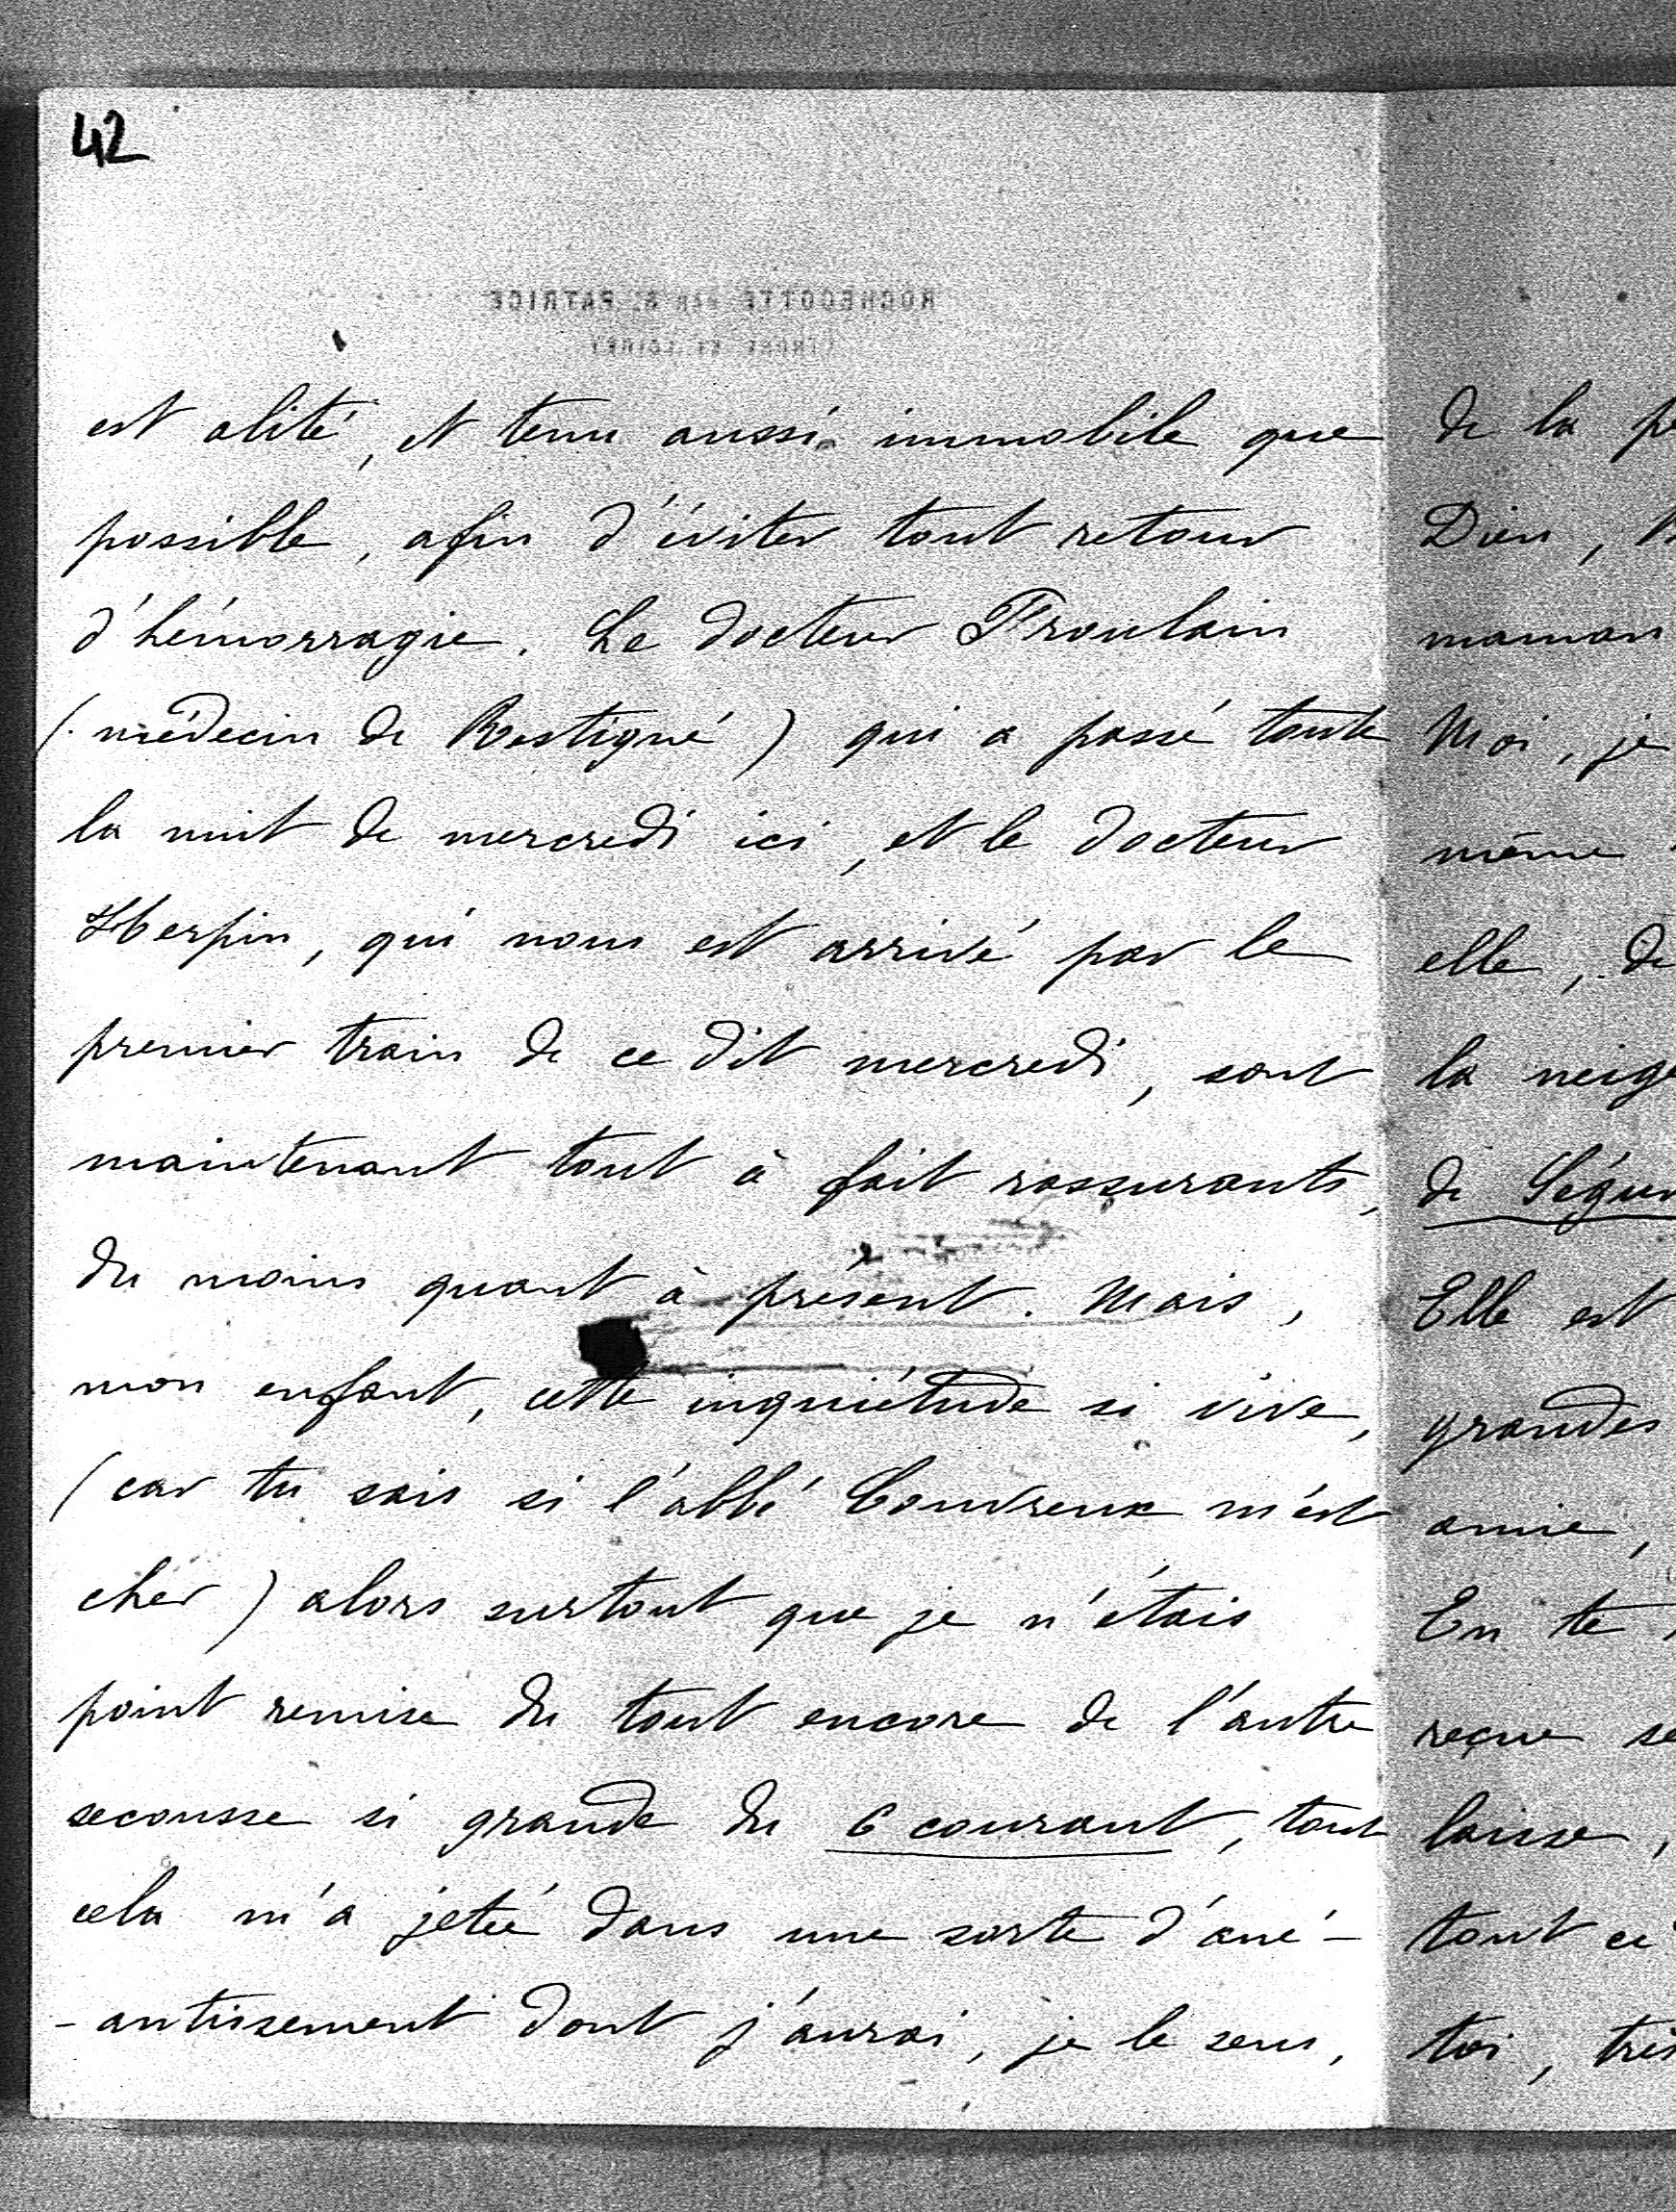 42
ROCHECOTTE PAR St PATRICE
(INDRE ET LOIRE)
est alité, et tenu aussi immobile que
possible, afin d'éviter tout retour
d'hémorragie. Le docteur Froulain
(médecin de Restigné) qui a passé toute
la nuit de mercredi ici, et le docteur
Herpin, qui nous est arrivé par le
premier train de ce dit mercredi, sont
maintenant tout à fait rassurants,
du moins quant à présent. Mais,
mon enfant, cette inquiétude si vive,
(car tu sais si l'abbé Couvreux m'est
cher) alors surtout que je n'étais
point remise du tout encore de l'autre
secousse si grande du 6 courant, tout
cela m'a jetée dans une sorte d'ané-
-antissement dont j'aurai, je le sens,
de la
Dieu,
maman
Moi, je
même
elle, de
la neige
de Ségur
Elle est
grandes
amie,
En te
reçue
laisse,
tout ce
toi, très